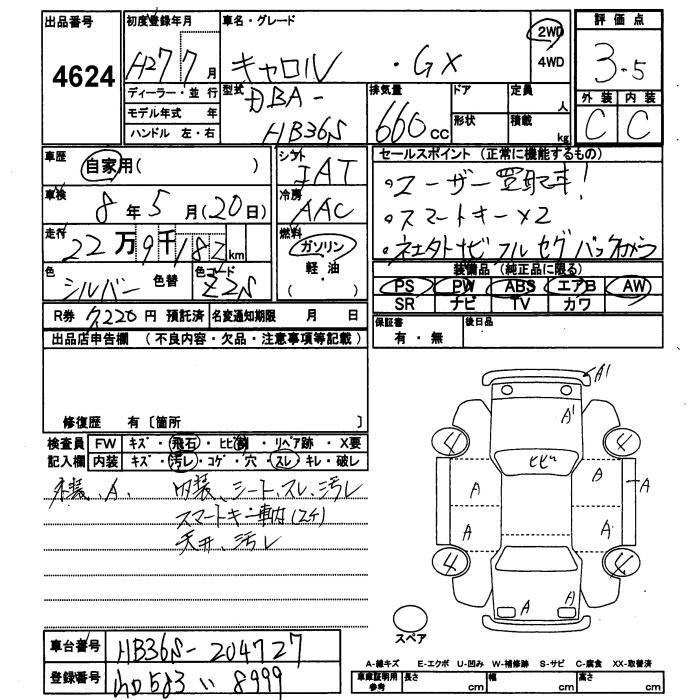 出品番号 初度登録年月 車名・グレード 評価点
4624 H27 7月 キャロル ・GX 2WD 4WD 3.5
ディーラー・並行 型式 排気量 ドア 定員 人 外装 内装
モデル年式 年 DBA- 660cc 形状 積載 kg C C
ハンドル 左・右 HB36S
車歴 自家用( ) シフト IAT セールスポイント (正常に機能するもの)
車検 8年5月(20日) 冷房 AAC ・ユーザー買取車!
・スマートキー×2
走行 22万9千182km 燃料 ガソリン 軽・油 ( ) ・ネエタトナビ フルセグ バックカメラ
色 シルバー 色替 色コード Z2S 装備品 (純正品に限る)
PS PW ABS エアB AW
SR ナビ TV カワ
R券 7220円 預託済 名変通知期限 月 日 保証書 有・無 後日品
出品店申告欄 (不良内容・欠品・注意事項等記載)
修復歴 有〔箇所 〕
検査員 FW キズ・飛石・ヒビ割・リペア跡・X要
記入欄 内装 キズ・汚レ・コゲ・穴・スレ・キレ・破レ
外装、A、 内装、シート、スレ、汚レ
スマートキー車内(2ケ)
天井、汚レ
A1
A1
4 ヒビー 4
A A A
A A
4 4
A A
スペア
A-線キズ E-エクボ U-凹み W-補修跡 S-サビ C-腐食 XX-取替済
車庫証明用参考 長さ cm 幅 cm 高さ cm
車台番号 HB36S-204727
登録番号 583 い 8999